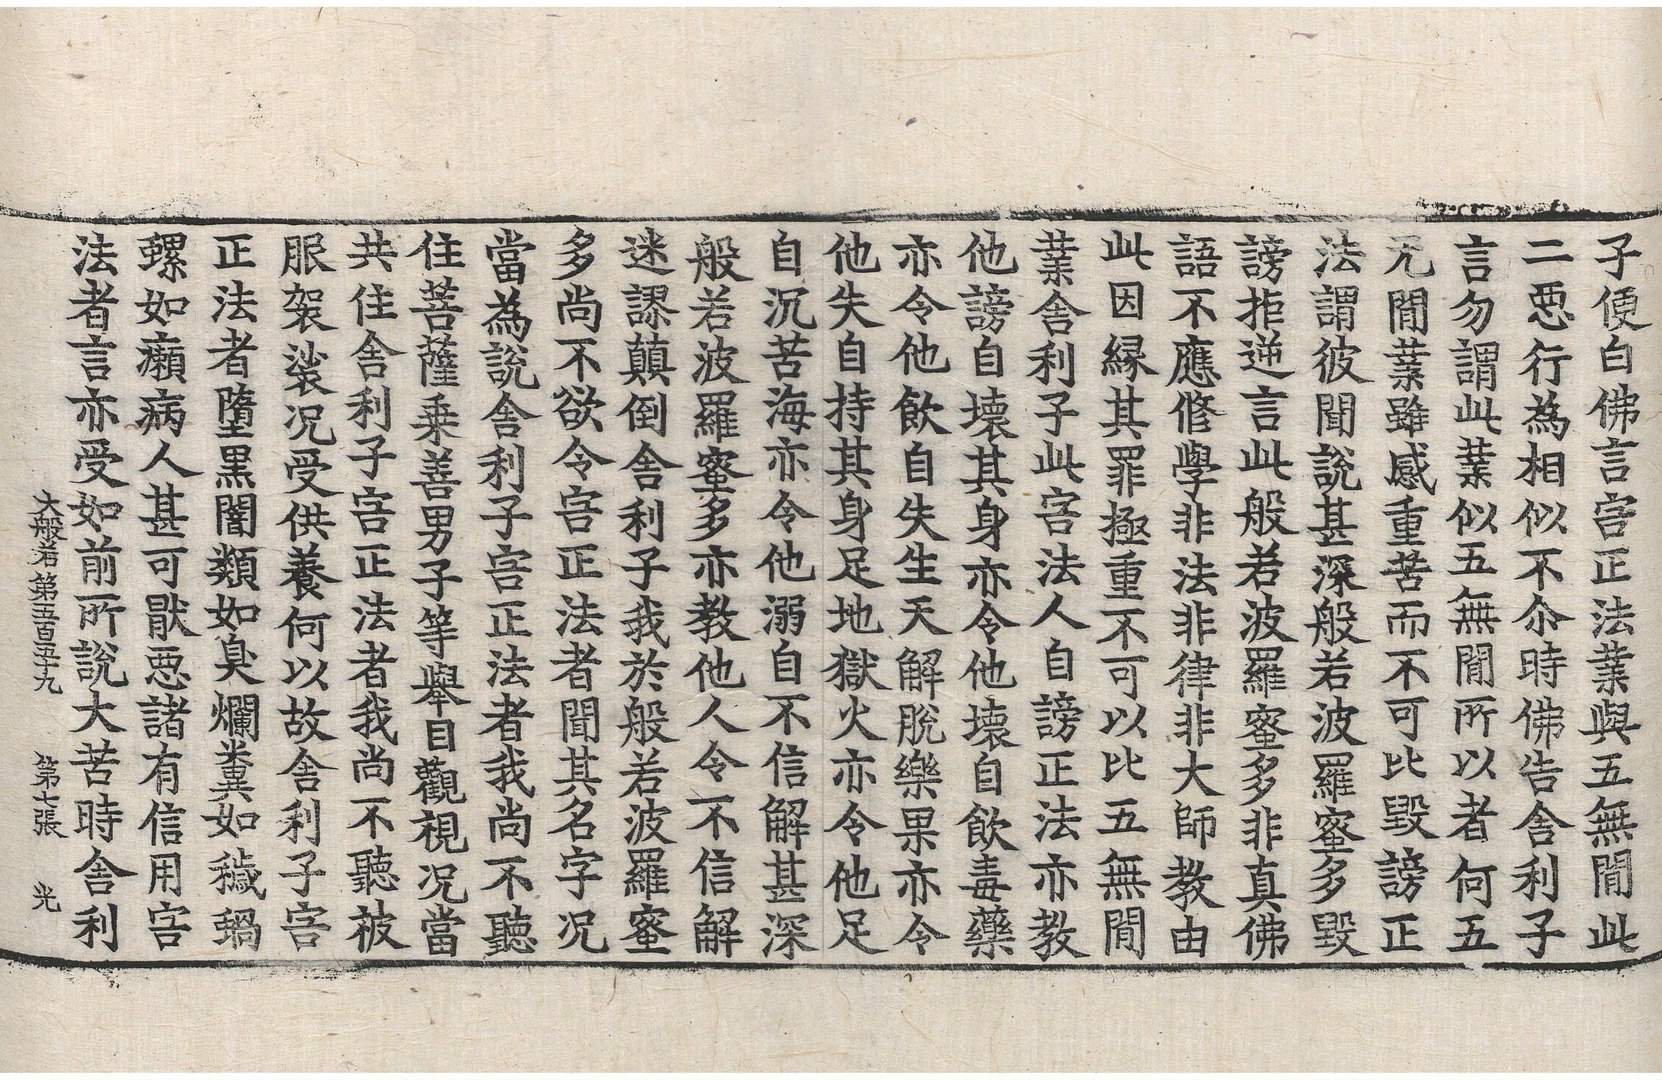 子便白佛言害正法業與五無間此
二惡行為相似不尒時佛告舍利子
言勿謂此業似五無間所以者何五
无間業雖感重苦而不可比毀謗正
法謂彼聞說甚深般若波羅蜜多毀
謗拒逆言此般若波羅蜜多非真佛
語不應修學非法非律非大師教由
此因緣其罪極重不可以比五無間
業舍利子此害法人自謗正法亦教
他謗自壞其身亦令他壞自飲毒藥
亦令他飲自失生天解脫樂果亦令
他失自持其身足地獄火亦令他足
自沉苦海亦令他溺自不信解甚深
般若波羅蜜多亦教他人令不信解
迷謬顛倒舍利子我於般若波羅蜜
多尚不欲令害正法者聞其名字况
當為說舍利子害正法者我尚不聽
住菩薩乗善男子等舉目觀視况當
共住舍利子害正法者我尚不聽被
服袈裟况受供養何以故舍利子害
正法者墮黑闇類如臭爛糞如穢蝸
螺如癩病人甚可猒惡諸有信用害
法者言亦受如前所說大苦時舍利
大般若第五百五十九　第七張　光